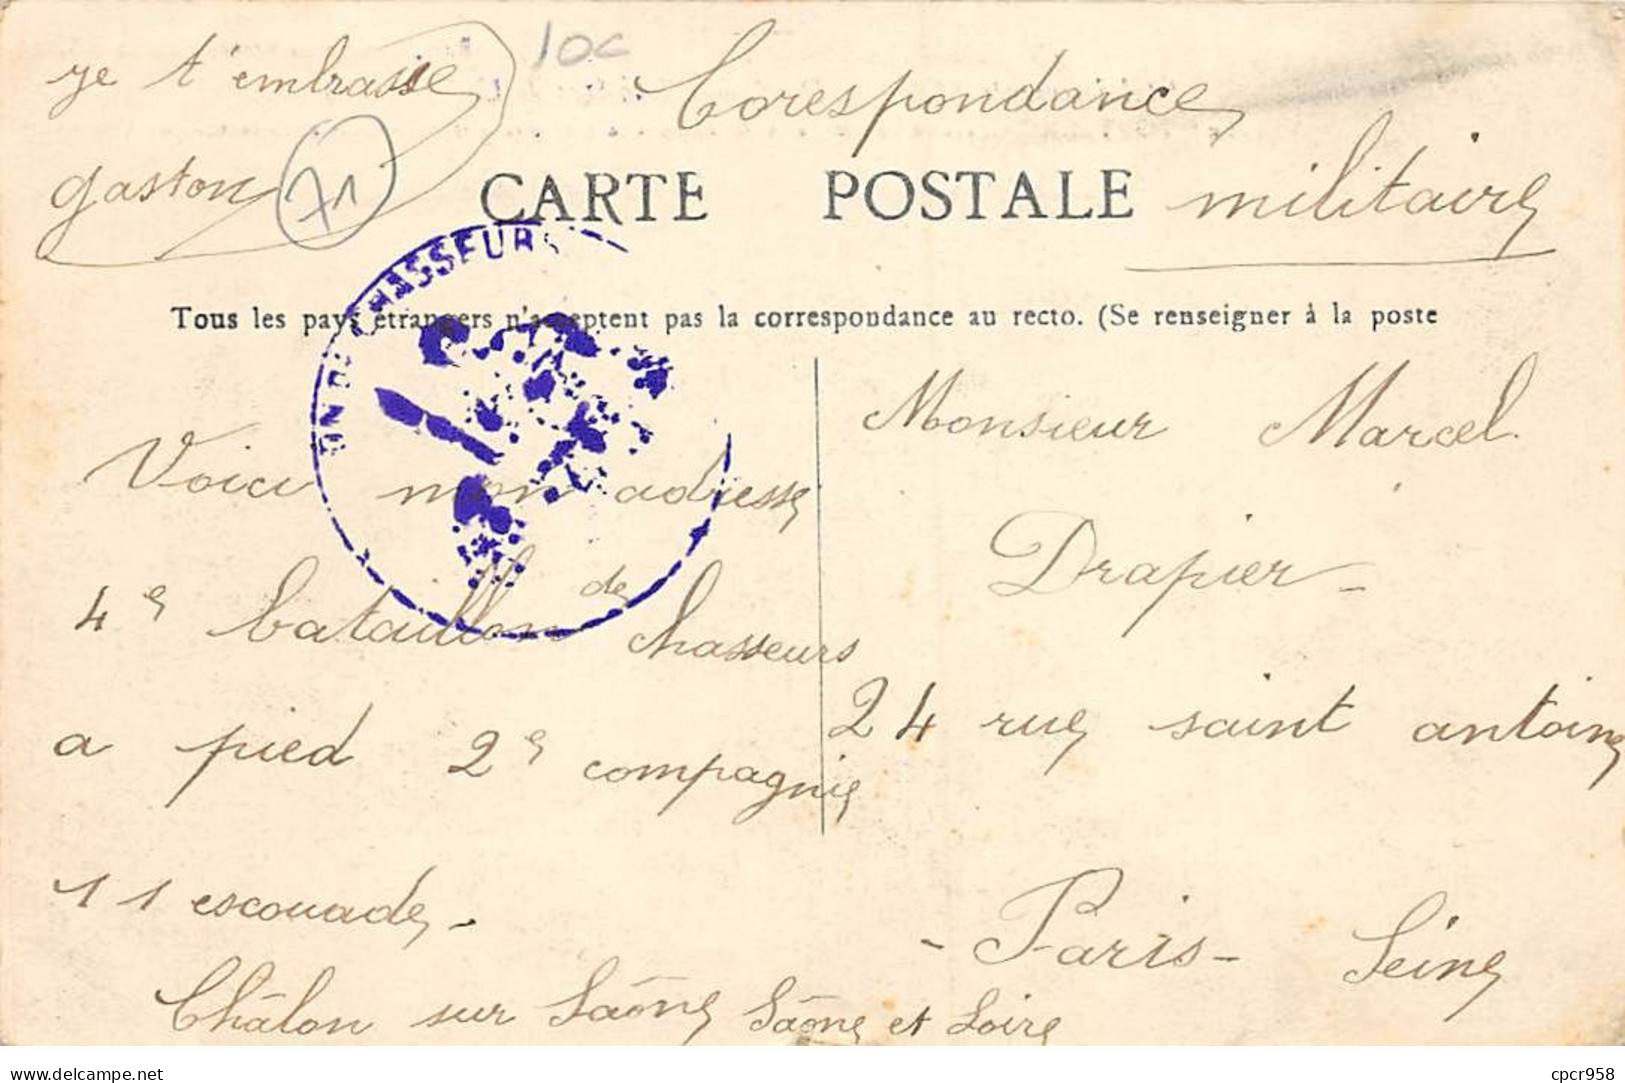 je t'embrasse
gaston
71
10c
Corespondance
militaire
CARTE POSTALE
Tous les pays étrangers n'acceptent pas la correspondance au recto. (Se renseigner à la poste
CHASSEURS
Voici mon adresse
4e bataillon de chasseurs
a pied 2e compagnie
11 escouade.
Châlon sur Saône Saône et Loire
Monsieur Marcel
Drapier -
24 rue saint antoine
- Paris - Seine
delcampe.net
cpcr958